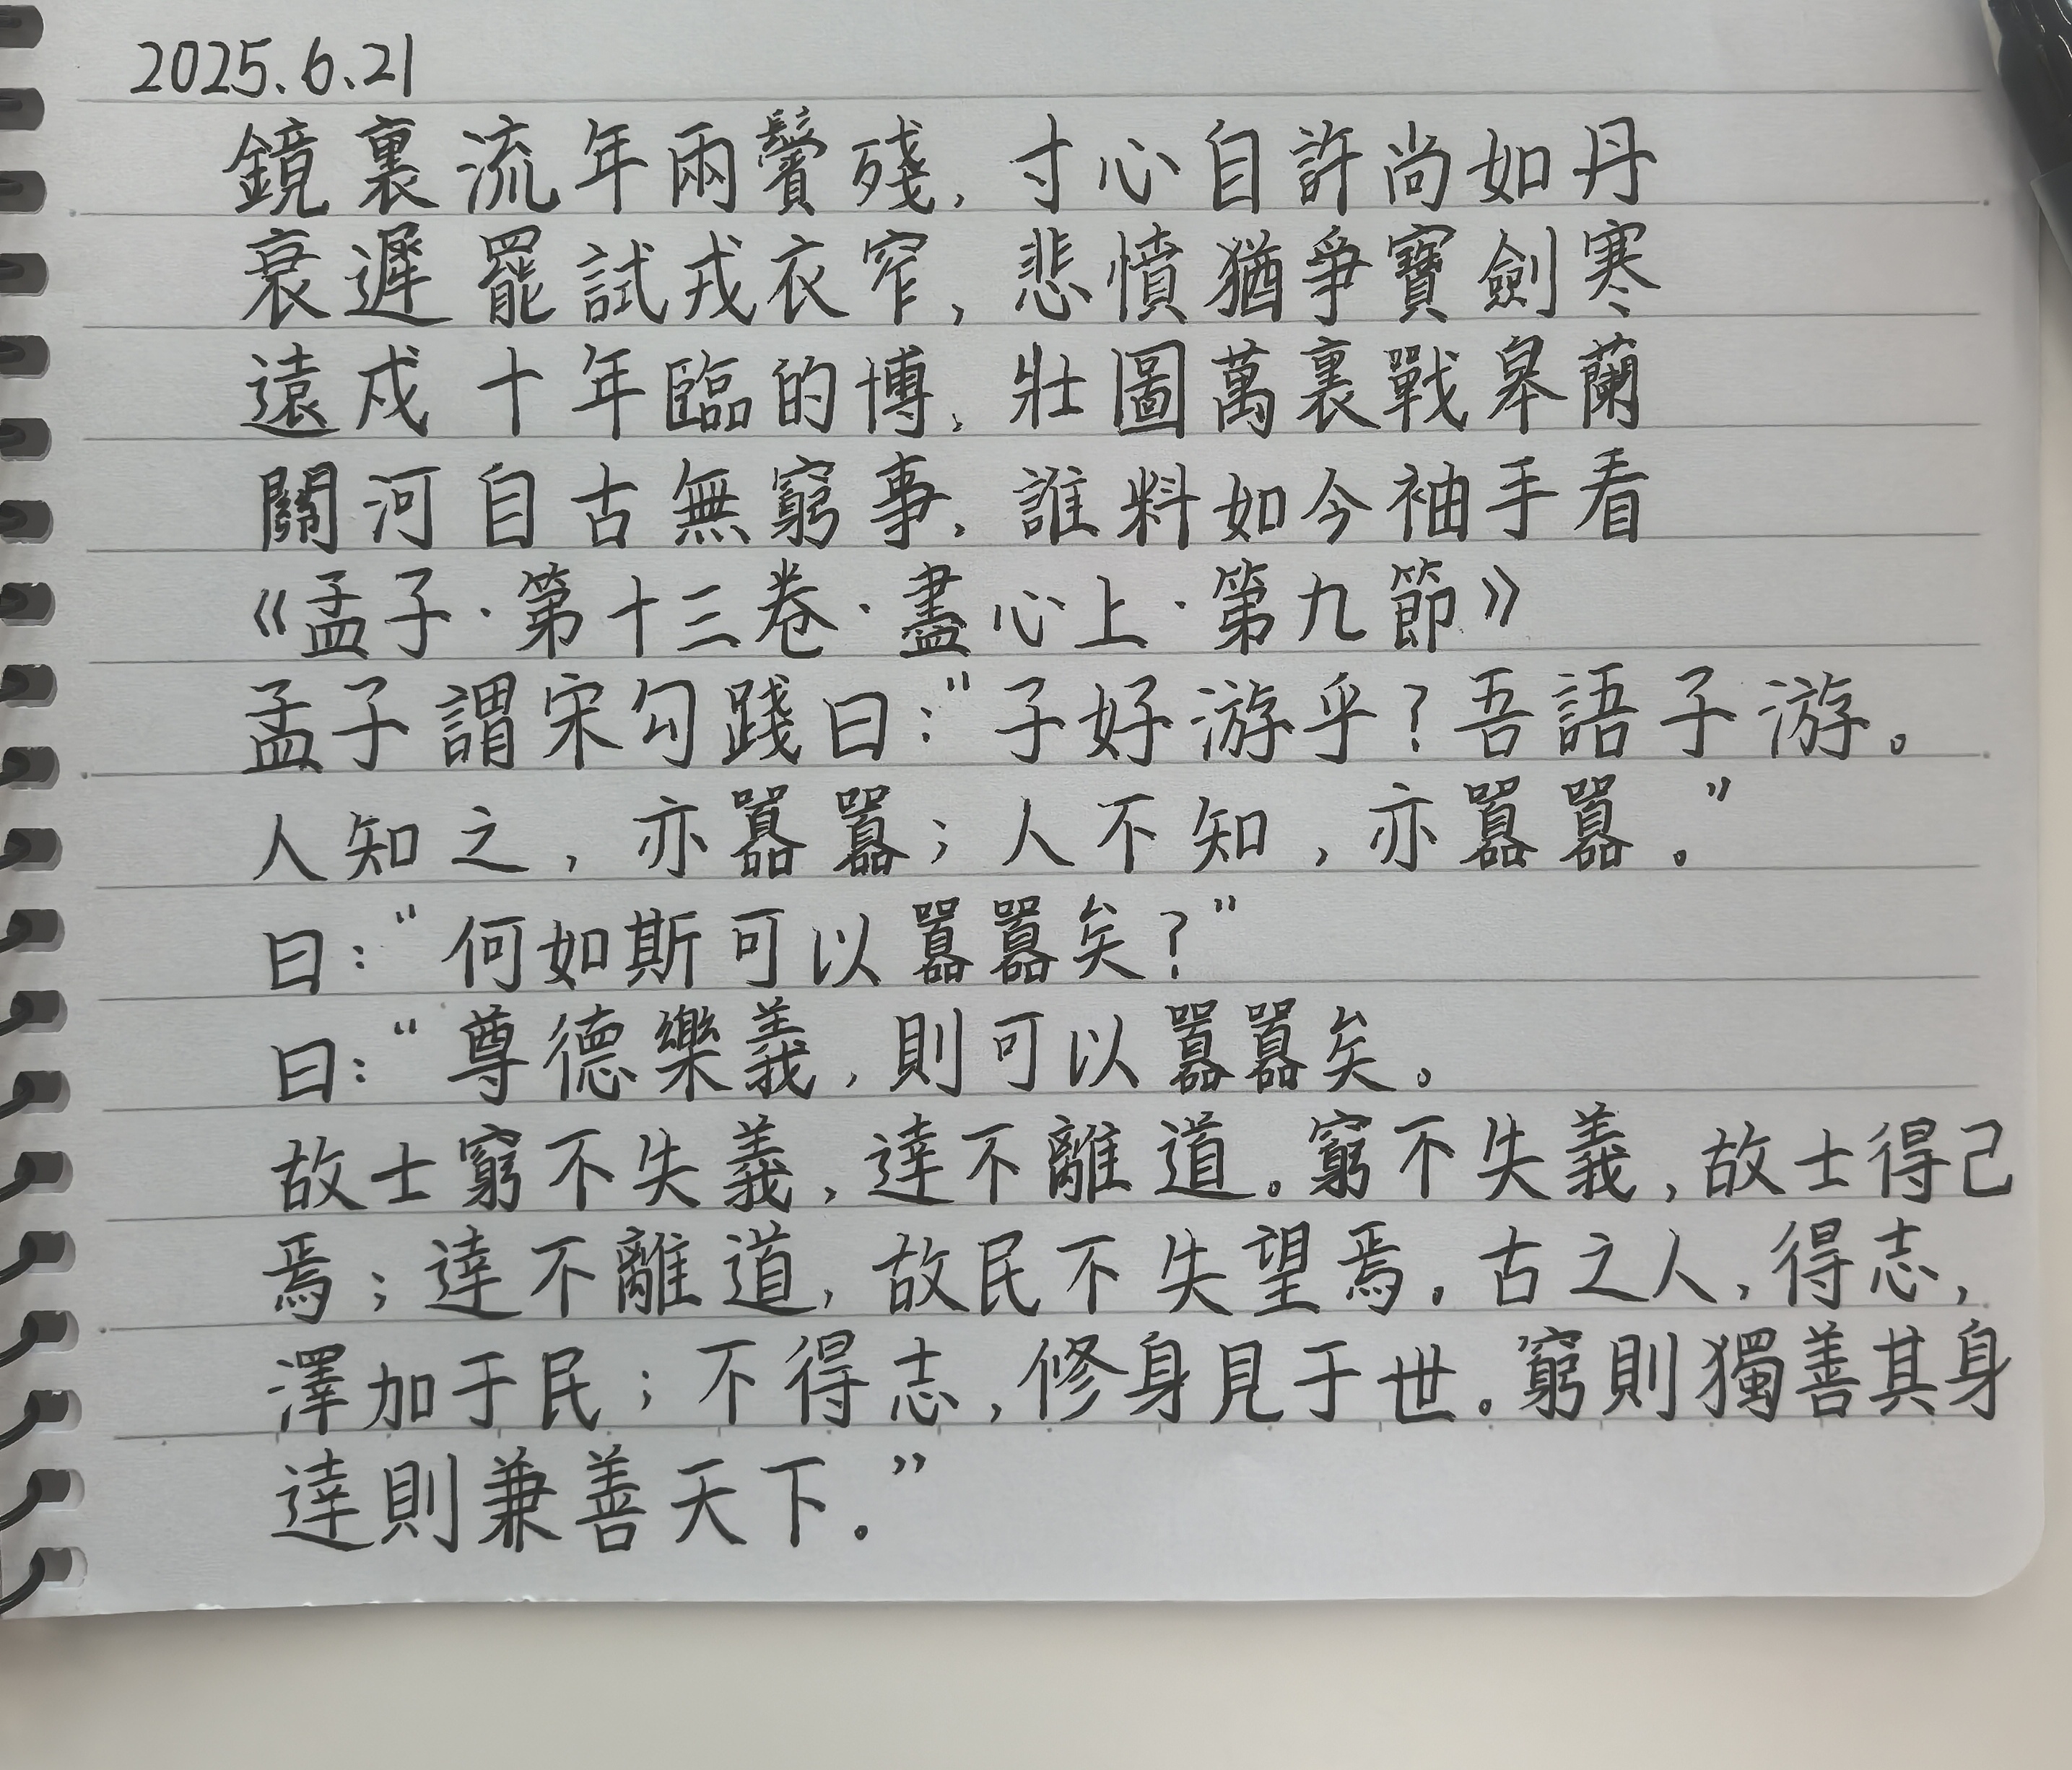 2025.6.21
鏡裏流年兩鬢殘,寸心自許尚如丹
衰遲罷試戎衣窄,悲憤猶爭寶劍寒
遠戍十年臨的博,壯圖萬裏戰皋蘭
關河自古無窮事,誰料如今袖手看
《孟子·第十三卷·盡心上·第九節》
孟子謂宋勾踐曰:"子好游乎?吾語子游。
人知之,亦囂囂;人不知,亦囂囂。"
曰:"何如斯可以囂囂矣?"
曰:"尊德樂義,則可以囂囂矣。
故士窮不失義,達不離道。窮不失義,故士得己
焉;達不離道,故民不失望焉。古之人,得志,
澤加于民;不得志,修身見于世。窮則獨善其身
達則兼善天下。"